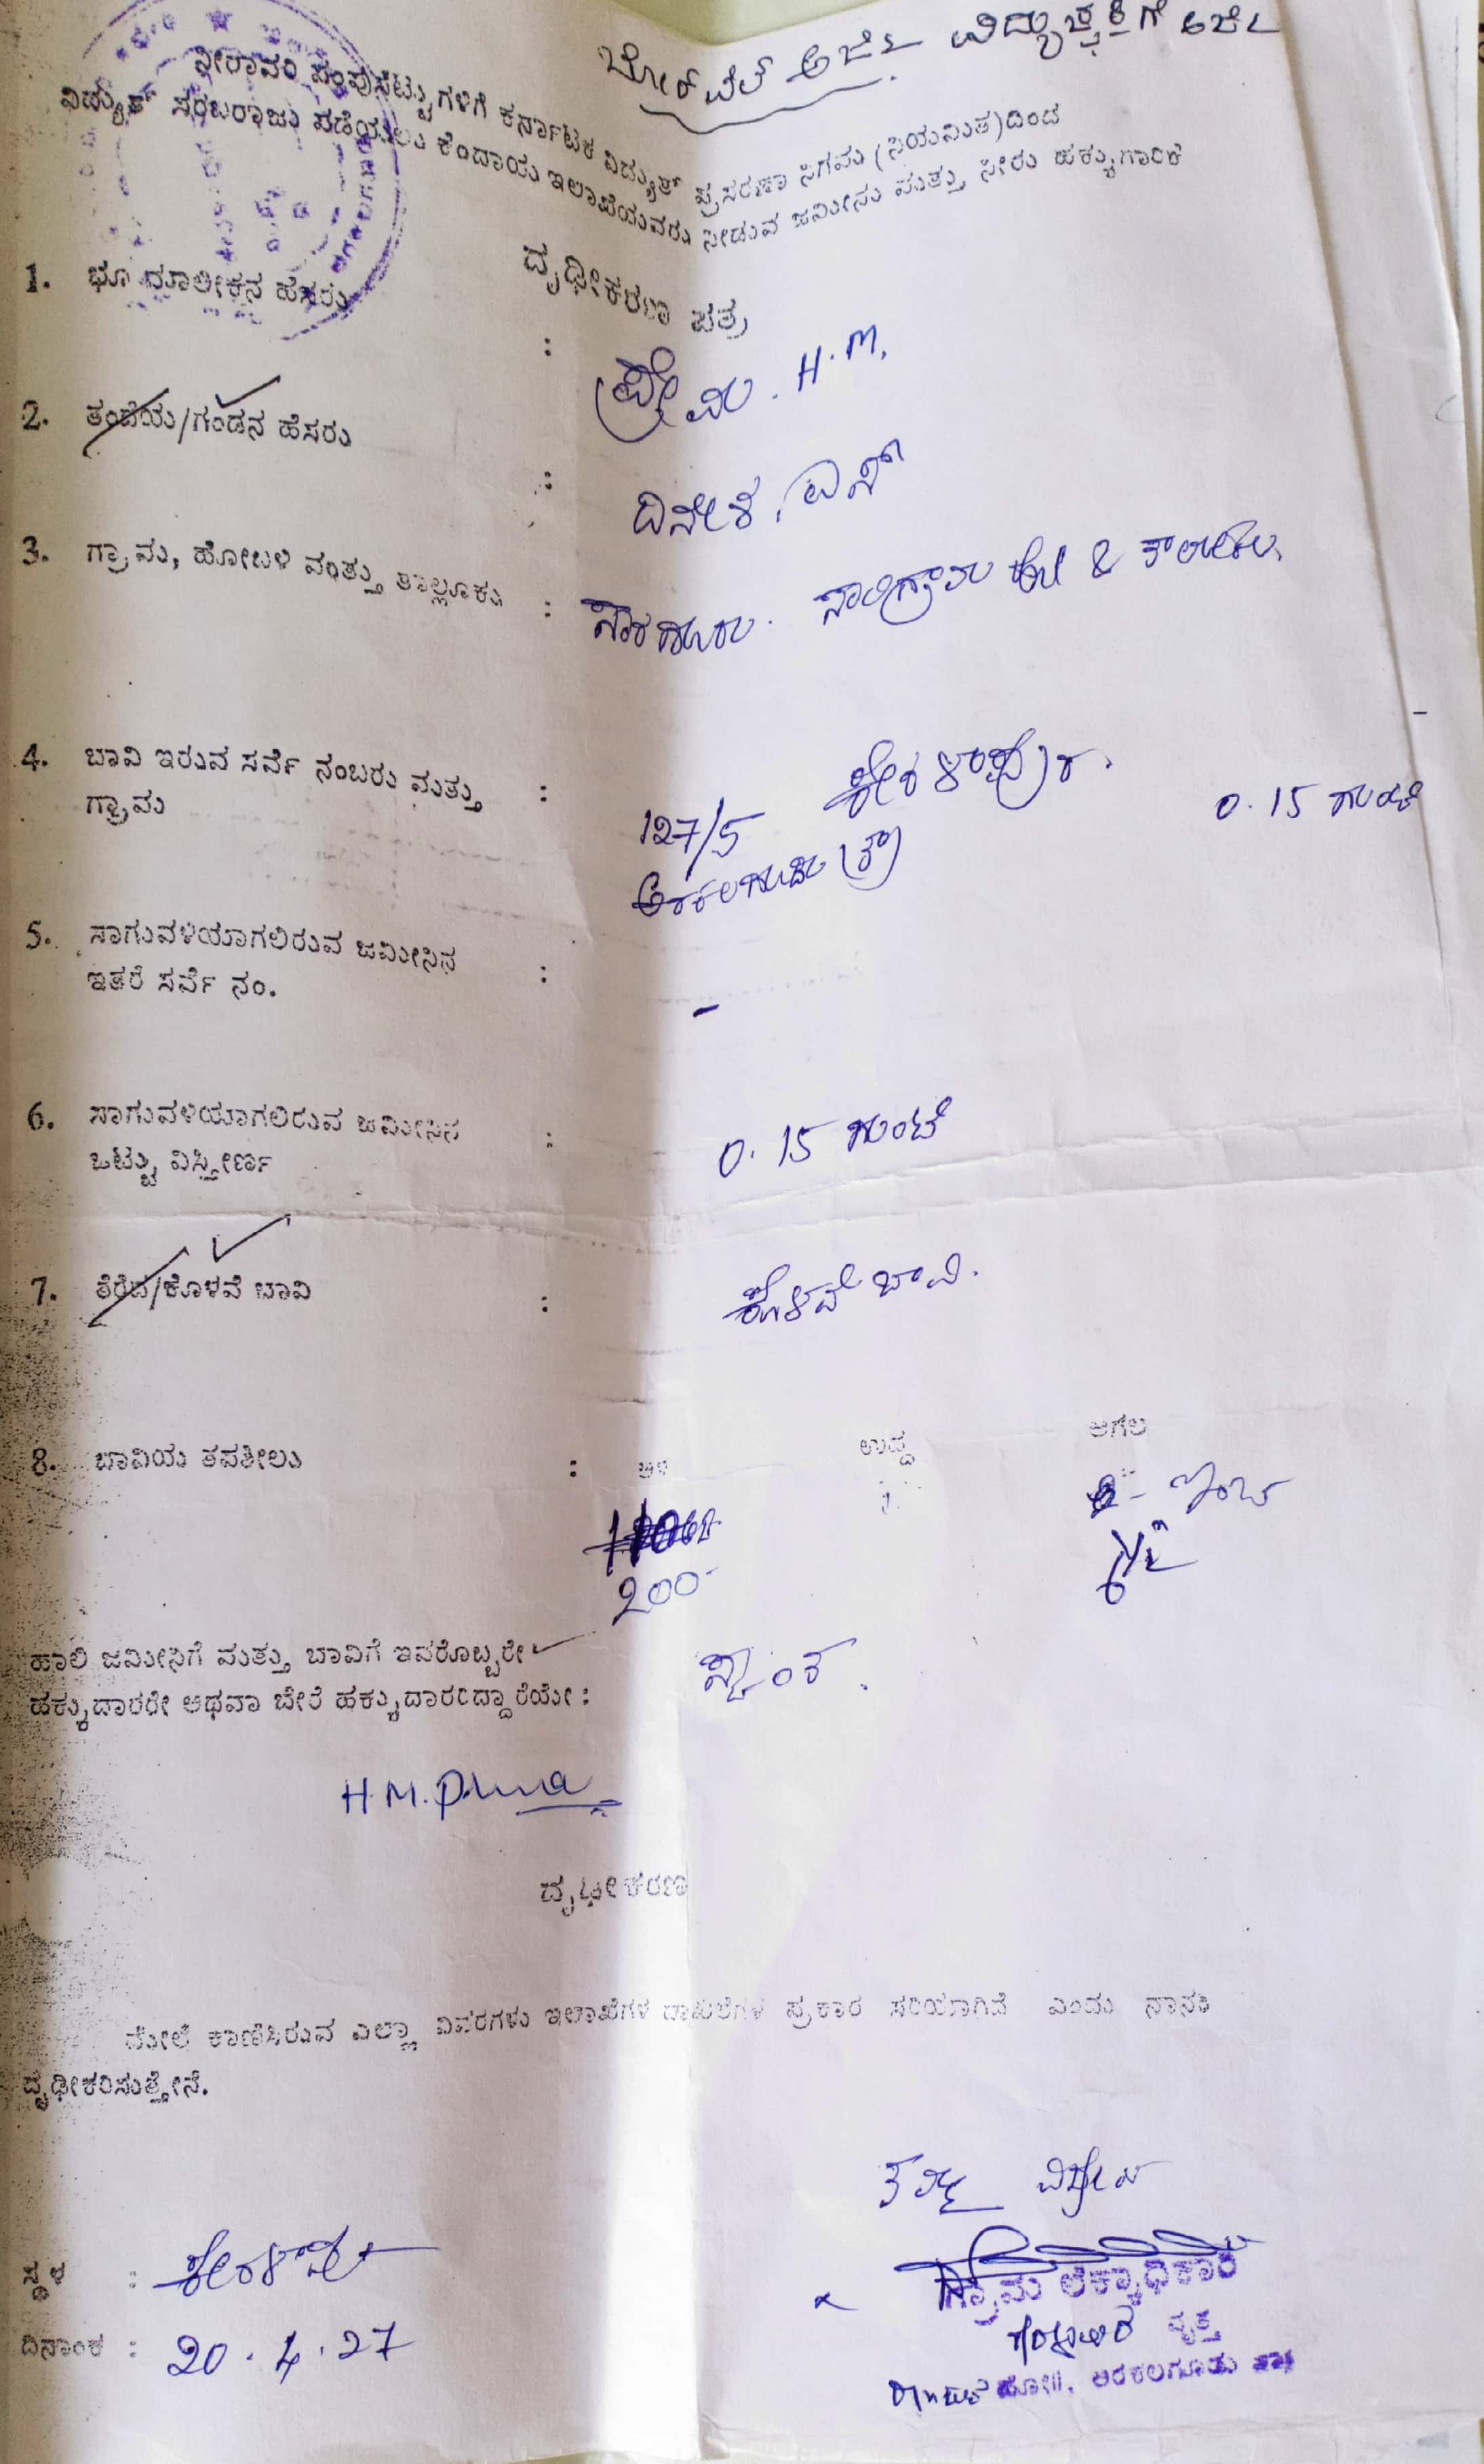 ಬೋರ್‌ವೆಲ್ ಅರ್ಜಿ ವಿದ್ಯುಚ್ಛಕ್ತಿಗೆ ಅರ್ಜಿ
ನೀರಾವರಿ ಪಂಪುಸೆಟ್ಟುಗಳಿಗೆ ಕರ್ನಾಟಕ ವಿದ್ಯುತ್ ಪ್ರಸರಣಾ ನಿಗಮ (ನಿಯಮಿತ)ದಿಂದ
ವಿದ್ಯುತ್ ಸರಬರಾಜು ಪಡೆಯಲು ಕಂದಾಯ ಇಲಾಖೆಯವರು ನೀಡುವ ಜಮೀನು ಮತ್ತು ನೀರು ಹಕ್ಕುಗಾರಿಕೆ
ದೃಢೀಕರಣ ಪತ್ರ
1. ಭೂ ಮಾಲೀಕನ ಹೆಸರು : ಪ್ರೇಮ. H.M.
2. ತಂದೆಯ/ಗಂಡನ ಹೆಸರು : ದಿನೇಶ. ಎನ್
3. ಗ್ರಾಮ, ಹೋಬಳಿ ಮತ್ತು ತಾಲ್ಲೂಕು : ಸಾಲಿಗ್ರಾಮ &
4. ಬಾವಿ ಇರುವ ಸರ್ವೆ ನಂಬರು ಮತ್ತು : 127/5 ಕೇರಳಾಪುರ. 0.15 ಗುಂಟೆ
ಗ್ರಾಮ ಅರಕಲಗೂಡು (ತಾ)
5. ಸಾಗುವಳಿಯಾಗಲಿರುವ ಜಮೀನಿನ :
ಇತರೆ ಸರ್ವೆ ನಂ. -
6. ಸಾಗುವಳಿಯಾಗಲಿರುವ ಜಮೀನಿನ : 0.15 ಗುಂಟೆ
ಒಟ್ಟು ವಿಸ್ತೀರ್ಣ
7. ತೆರೆದ/ಕೊಳವೆ ಬಾವಿ : ಕೊಳವೆ ಬಾವಿ.
8. ಬಾವಿಯ ತಪಶೀಲು : ಆಳ ಉದ್ದ ಅಗಲ
200 6½"
ಹಾಲಿ ಜಮೀನಿಗೆ ಮತ್ತು ಬಾವಿಗೆ ಇವರೊಬ್ಬರೇ
ಹಕ್ಕುದಾರರೇ ಅಥವಾ ಬೇರೆ ಹಕ್ಕುದಾರರಿದ್ದಾರೆಯೇ : ಸ್ವಂತ.
H.M. Prema
ದೃಢೀಕರಣ
ಮೇಲೆ ಕಾಣಿಸಿರುವ ಎಲ್ಲಾ ವಿವರಗಳು ಇಲಾಖೆಗಳ ದಾಖಲೆಗಳ ಪ್ರಕಾರ ಸರಿಯಾಗಿವೆ ಎಂದು ನಾನು
ದೃಢೀಕರಿಸುತ್ತೇನೆ.
ಸ್ಥಳ : ಕೇರಳಾಪುರ
ಗ್ರಾಮ ಲೆಕ್ಕಾಧಿಕಾರಿ
ವೃತ್ತ
ದಿನಾಂಕ : 20.4.27
ಹೋ॥, ಅರಕಲಗೂಡು ತಾ॥